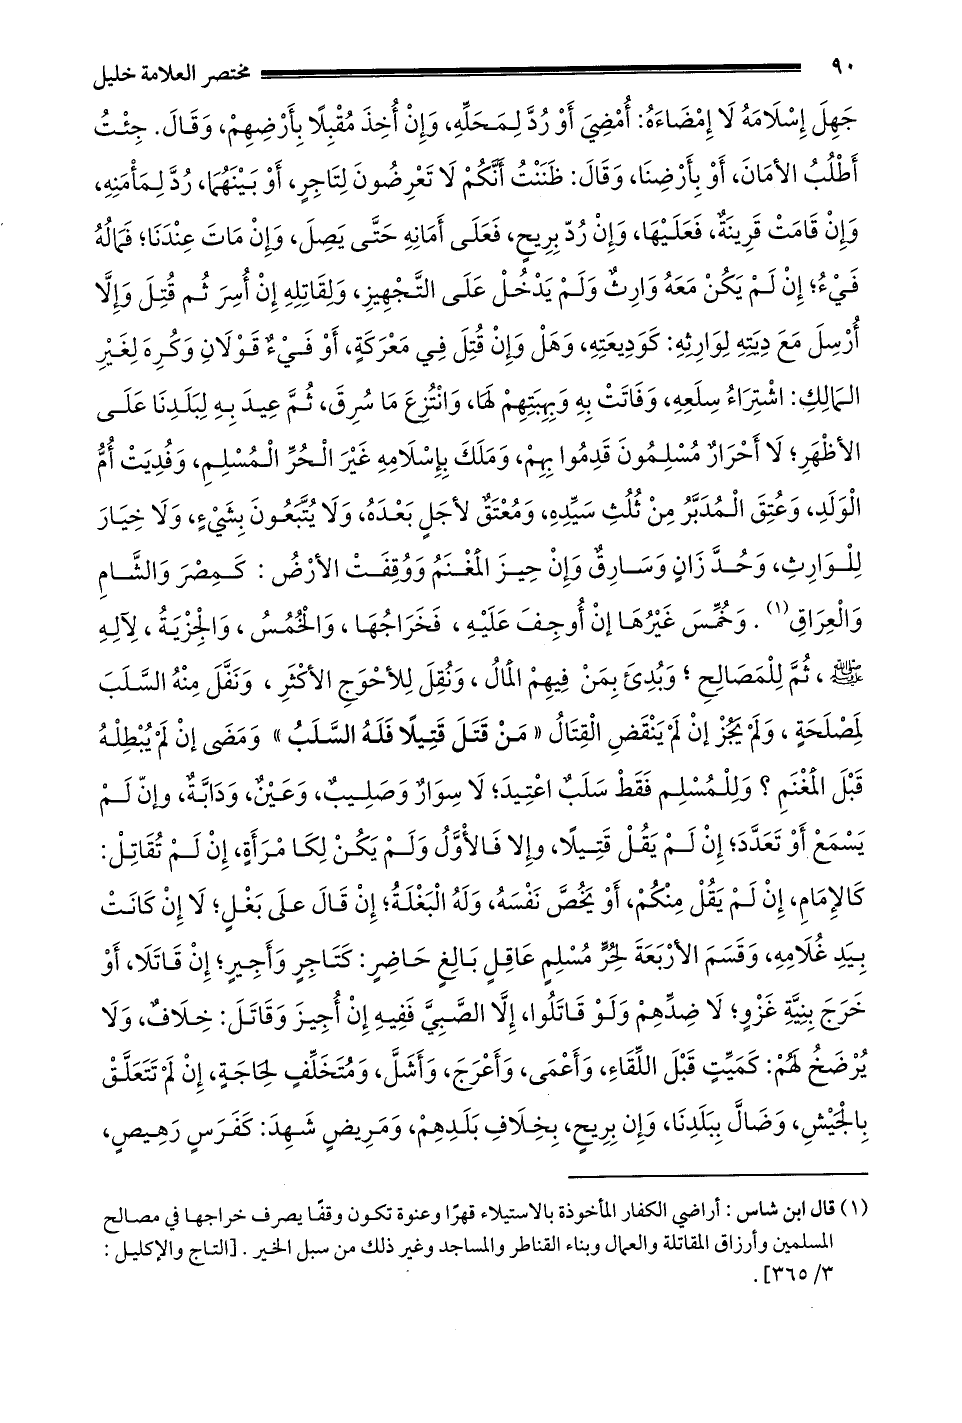 ٩٠ مختصر العلامة خليل
جَهِلَ إِسْلَامَهُ لَا إِمْضَاءَهُ: أُمْضِيَ أَوْ رُدَّ لِمَحَلِّهِ، وَإِنْ أُخِذَ مُقْبِلًا بِأَرْضِهِمْ، وَقَالَ. جِئْتُ
أَطْلُبُ الأمَانَ، أَوْ بِأَرْضِنَا، وَقَالَ: ظَنَنْتُ أَنَّكُمْ لَا تَعْرِضُونَ لِتَاجِرٍ، أَوْ بَيْنَهُمَا، رُدَّ لِمَأْمَنِهِ،
وَإِنْ قَامَتْ قَرِينَةٌ، فَعَلَيْهَا، وَإِنْ رُدّ بِرِيحٍ، فَعَلَى أَمَانِهِ حَتَّى يَصِلَ، وَإِنْ مَاتَ عِنْدَنَا؛ فَمَالُهُ
فَيْءٌ؛ إِنْ لَمْ يَكُنْ مَعَهُ وَارِثٌ وَلَمْ يَدْخُلْ عَلَى التَّجْهِيزِ، وَلِقَاتِلِهِ إِنْ أُسِرَ ثُم قُتِلَ وَإِلَّا
أُرْسِلَ مَعَ دِيَتِهِ لِوَارِثِهِ: كَوَدِيعَتِهِ، وَهَلْ وَإِنْ قُتِلَ فِي مَعْرَكَةٍ، أَوْ فَيْءٌ قَوْلَانِ وَكُرِهَ لِغَيْرِ
المَالِكِ: اشْتِرَاءُ سِلَعِهِ، وَفَاتَتْ بِهِ وَبِهِبَتِهِمْ لَهَا، وَانْتُزِعَ مَا سُرِقَ، ثُمَّ عِيدَ بِهِ لِبَلَدِنَا عَلَى
الأظْهَرِ؛ لَا أَحْرَارٌ مُسْلِمُونَ قَدِمُوا بِهِمْ، وَمَلَكَ بِإِسْلَامِهِ غَيْرَ الْحُرِّ الْمُسْلِمِ، وَفُدِيَتْ أُمُّ
الْوَلَدِ، وَعُتِقَ الْمُدَبَّرُ مِنْ ثُلُثِ سَيِّدِهِ، وَمُعْتَقٌ لأجَلٍ بَعْدَهُ، وَلَا يُتَّبَعُونَ بِشَيْءٍ، وَلَا خِيَارَ
لِلْوَارِثِ، وَحُدَّ زَانٍ وَسَارِقٌ وَإِنْ حِيزَ الْمَغْنَمُ وَوُقِفَتْ الأرْضُ : كَمِصْرَ وَالشَّامِ
وَالْعِرَاقِ(١). وَخُمِّسَ غَيْرُهَا إِنْ أُوجِفَ عَلَيْهِ ، فَخَرَاجُهَا ، وَالْخُمُسُ ، وَالْجِزْيَةُ ، لِآلِهِ
ﷺ ، ثُمَّ لِلْمَصَالِحِ ؛ وَبُدِئَ بِمَنْ فِيهِمْ الْمَالُ ، وَنُقِلَ لِلأحْوَجِ الأكْثَرِ ، وَنَفَّلَ مِنْهُ السَّلَبَ
لِمَصْلَحَةٍ ، وَلَمْ يَجُزْ إِنْ لَمْ يَنْقَضِ الْقِتَالُ «مَنْ قَتَلَ قَتِيلًا فَلَهُ السَّلَبُ» وَمَضَى إِنْ لَمْ يُبْطِلْهُ
قَبْلَ الْمَغْنَمِ ؟ وَلِلْمُسْلِمِ فَقَطْ سَلَبٌ اعْتِيدَ؛ لَا سِوَارٌ وَصَلِيبٌ، وَعَيْنٌ، وَدَابَّةٌ، وإِنّ لَمْ
يَسْمَعْ أَوْ تَعَدَّدَ؛ إِنْ لَمْ يَقُلْ قَتِيلًا، وإِلا فَالأَوَّلُ وَلَمْ يَكُنْ لِكَا مْرَأَةٍ، إِنْ لَمْ تُقَاتِلْ:
كَالإمَامِ، إِنْ لَمْ يَقُلْ مِنْكُمْ، أَوْ يَخُصَّ نَفْسَهُ، وَلَهُ الْبَغْلَةُ؛ إِنْ قَالَ على بَغْلٍ؛ لَا إِنْ كَانَتْ
بِيَدِ غُلَامِهِ، وَقَسَمَ الأرْبَعَةَ لِحُرٍّ مُسْلِمٍ عَاقِلٍ بَالِغٍ حَاضِرٍ: كَتَاجِرٍ وَأَجِيرٍ؛ إِنْ قَاتَلَا، أَوْ
خَرَجَ بِنِيَّةِ غَزْوٍ؛ لَا ضِدِّهِمْ وَلَوْ قَاتَلُوا، إِلَّا الصَّبِيَّ فَفِيهِ إِنْ أُجِيزَ وَقَاتَلَ: خِلَافٌ، وَلَا
يُرْضَخُ لَهُمْ: كَمَيِّتٍ قَبْلَ اللِّقَاءِ، وَأَعْمَى، وَأَعْرَجَ، وَأَشَلَّ، وَمُتَخَلِّفٍ لِحَاجَةٍ، إِنْ لَمْ تَتَعَلَّقْ
بِالْجَيْشِ، وَضَالٍّ بِبَلَدِنَا، وَإِن بِرِيحٍ، بِخِلَافِ بَلَدِهِمْ، وَمَرِيضٍ شَهِدَ: كَفَرَسٍ رَهِيصٍ،
(١) قال ابن شاس : أراضي الكفار المأخوذة بالاستيلاء قهرًا وعنوة تكون وقفًا يصرف خراجها في مصالح
المسلمين وأرزاق المقاتلة والعمال وبناء القناطر والمساجد وغير ذلك من سبل الخير . [التاج والإكليل :
٣/ ٣٦٥].